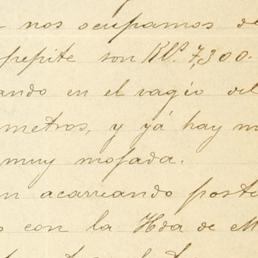 nos ocupamos de
pepite son Kls. 7,300.
ando en el vagio del
metros, y yá hay m
muy mojada.
n acarreando poste
s con la Hda de M